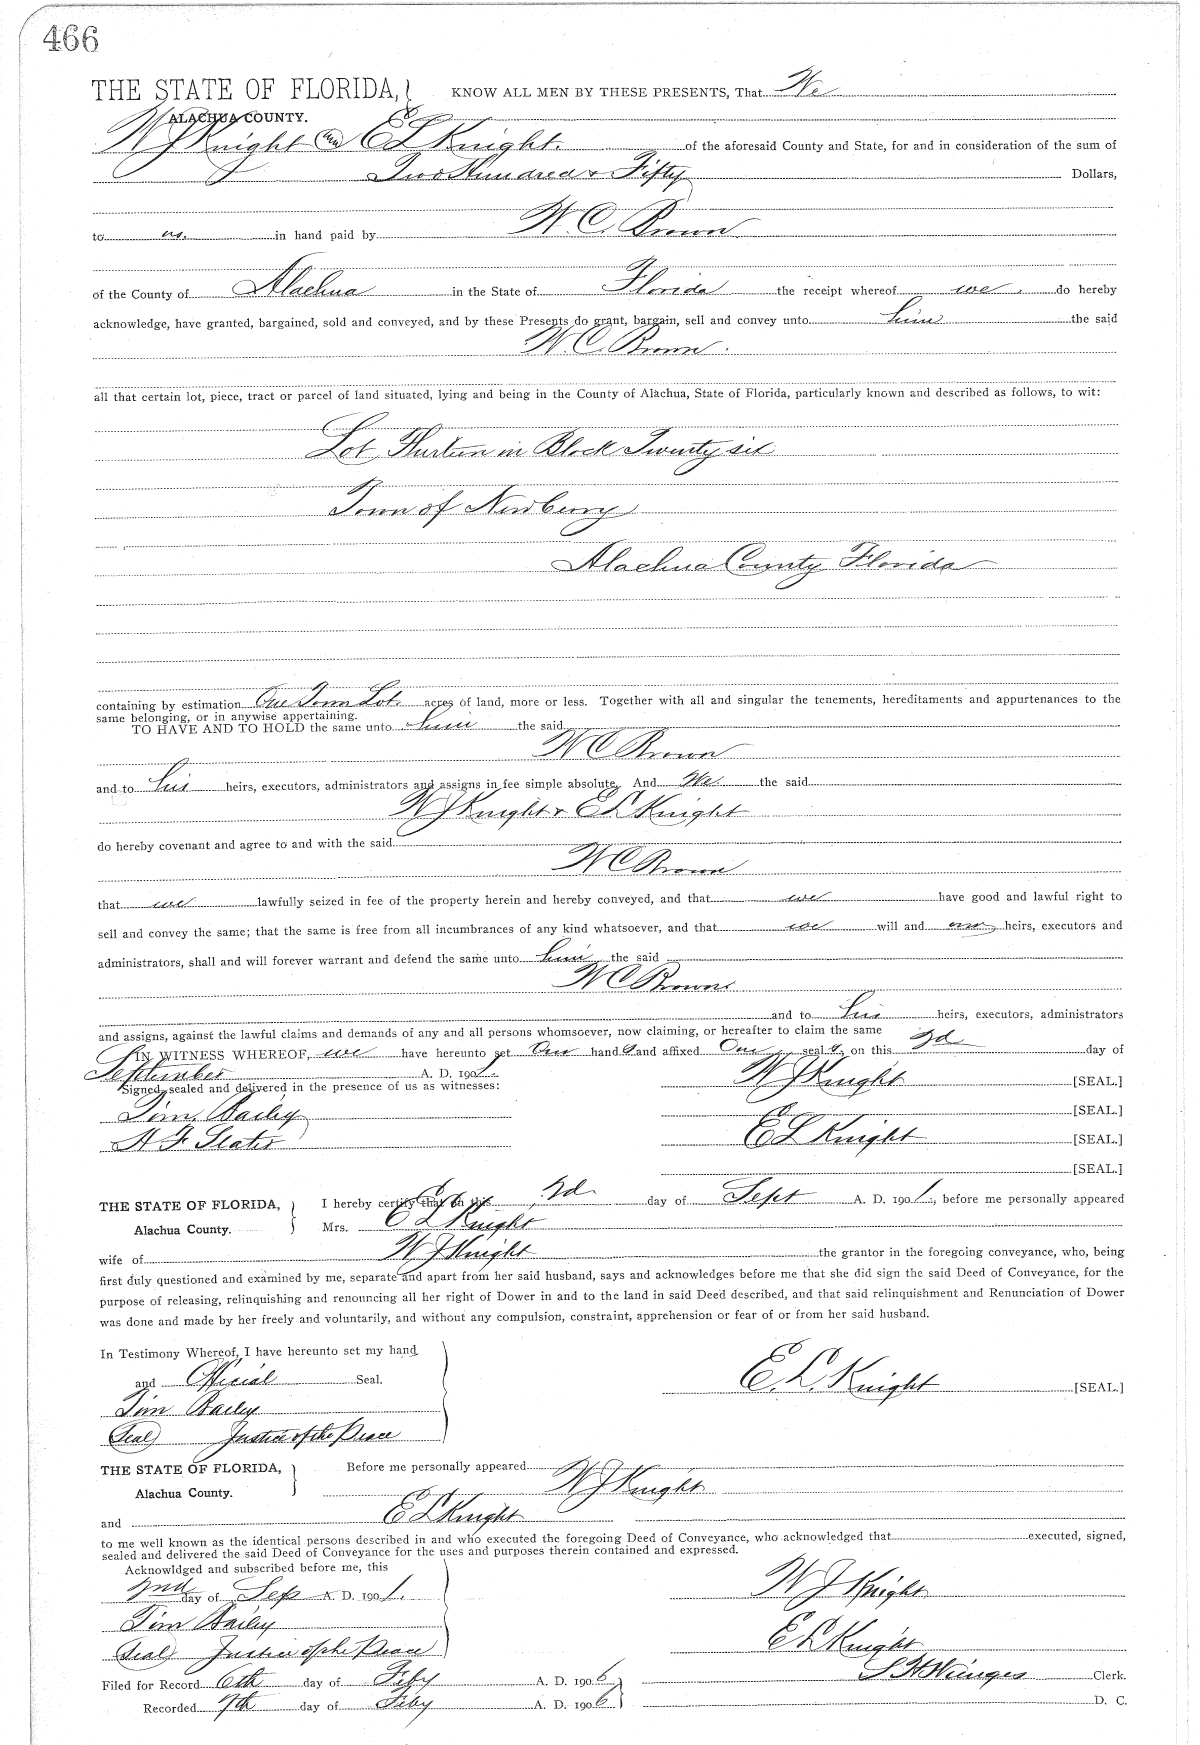 466
THE STATE OF FLORIDA, KNOW ALL MEN BY THESE PRESENTS, That We
ALACHUA COUNTY.
W J Knight and E L Knight. of the aforesaid County and State, for and in consideration of the sum of
Two Hundred & Fifty Dollars,
to us. in hand paid by W. C. Brown
of the County of Alachua in the State of Florida the receipt whereof we do hereby
acknowledge, have granted, bargained, sold and conveyed, and by these Presents do grant, bargain, sell and convey unto him the said
W. C. Brown.
all that certain lot, piece, tract or parcel of land situated, lying and being in the County of Alachua, State of Florida, particularly known and described as follows, to wit:
Lot in Block Twenty six
Town of Newberry
Alachua County Florida
containing by estimation One Town Lot. acres of land, more or less. Together with all and singular the tenements, hereditaments and appurtenances to the
same belonging, or in anywise appertaining.
TO HAVE AND TO HOLD the same unto him the said
W C Brown
and to his heirs, executors, administrators and assigns in fee simple absolute. And We the said
W J Knight & E L Knight
do hereby covenant and agree to and with the said
W C Brown
that we lawfully seized in fee of the property herein and hereby conveyed, and that we have good and lawful right to
sell and convey the same; that the same is free from all incumbrances of any kind whatsoever, and that we will and our heirs, executors and
administrators, shall and will forever warrant and defend the same unto him the said
W C Brown
and to his heirs, executors, administrators
and assigns, against the lawful claims and demands of any and all persons whomsoever, now claiming, or hereafter to claim the same
IN WITNESS WHEREOF, we have hereunto set Our hand s and affixed Our seal s, on this 2d day of
September A. D. 1901.
Signed, sealed and delivered in the presence of us as witnesses: W J Knight [SEAL.]
Tim Bailey [SEAL.]
E L Knight [SEAL.]
[SEAL.]
THE STATE OF FLORIDA, I hereby certify that on this 2d day of Sept A. D. 1901., before me personally appeared
Alachua County. Mrs. E L Knight
wife of W J Knight the grantor in the foregoing conveyance, who, being
first duly questioned and examined by me, separate and apart from her said husband, says and acknowledges before me that she did sign the said Deed of Conveyance, for the
purpose of releasing, relinquishing and renouncing all her right of Dower in and to the land in said Deed described, and that said relinquishment and Renunciation of Dower
was done and made by her freely and voluntarily, and without any compulsion, constraint, apprehension or fear of or from her said husband.
In Testimony Whereof, I have hereunto set my hand
and Official Seal. E. L. Knight [SEAL.]
Tim Bailey
(Seal) Justice of the Peace
THE STATE OF FLORIDA, Before me personally appeared W J Knight
Alachua County.
and E L Knight
to me well known as the identical persons described in and who executed the foregoing Deed of Conveyance, who acknowledged that executed, signed,
sealed and delivered the said Deed of Conveyance for the uses and purposes therein contained and expressed.
Acknowldged and subscribed before me, this
2nd day of Sep A. D. 1901. W J Knight
Tim Bailey
(Seal) Justice of the Peace E L Knight
Filed for Record 6th day of Feby A. D. 1906 Clerk.
Recorded 7th day of Feby A. D. 1906 D. C.